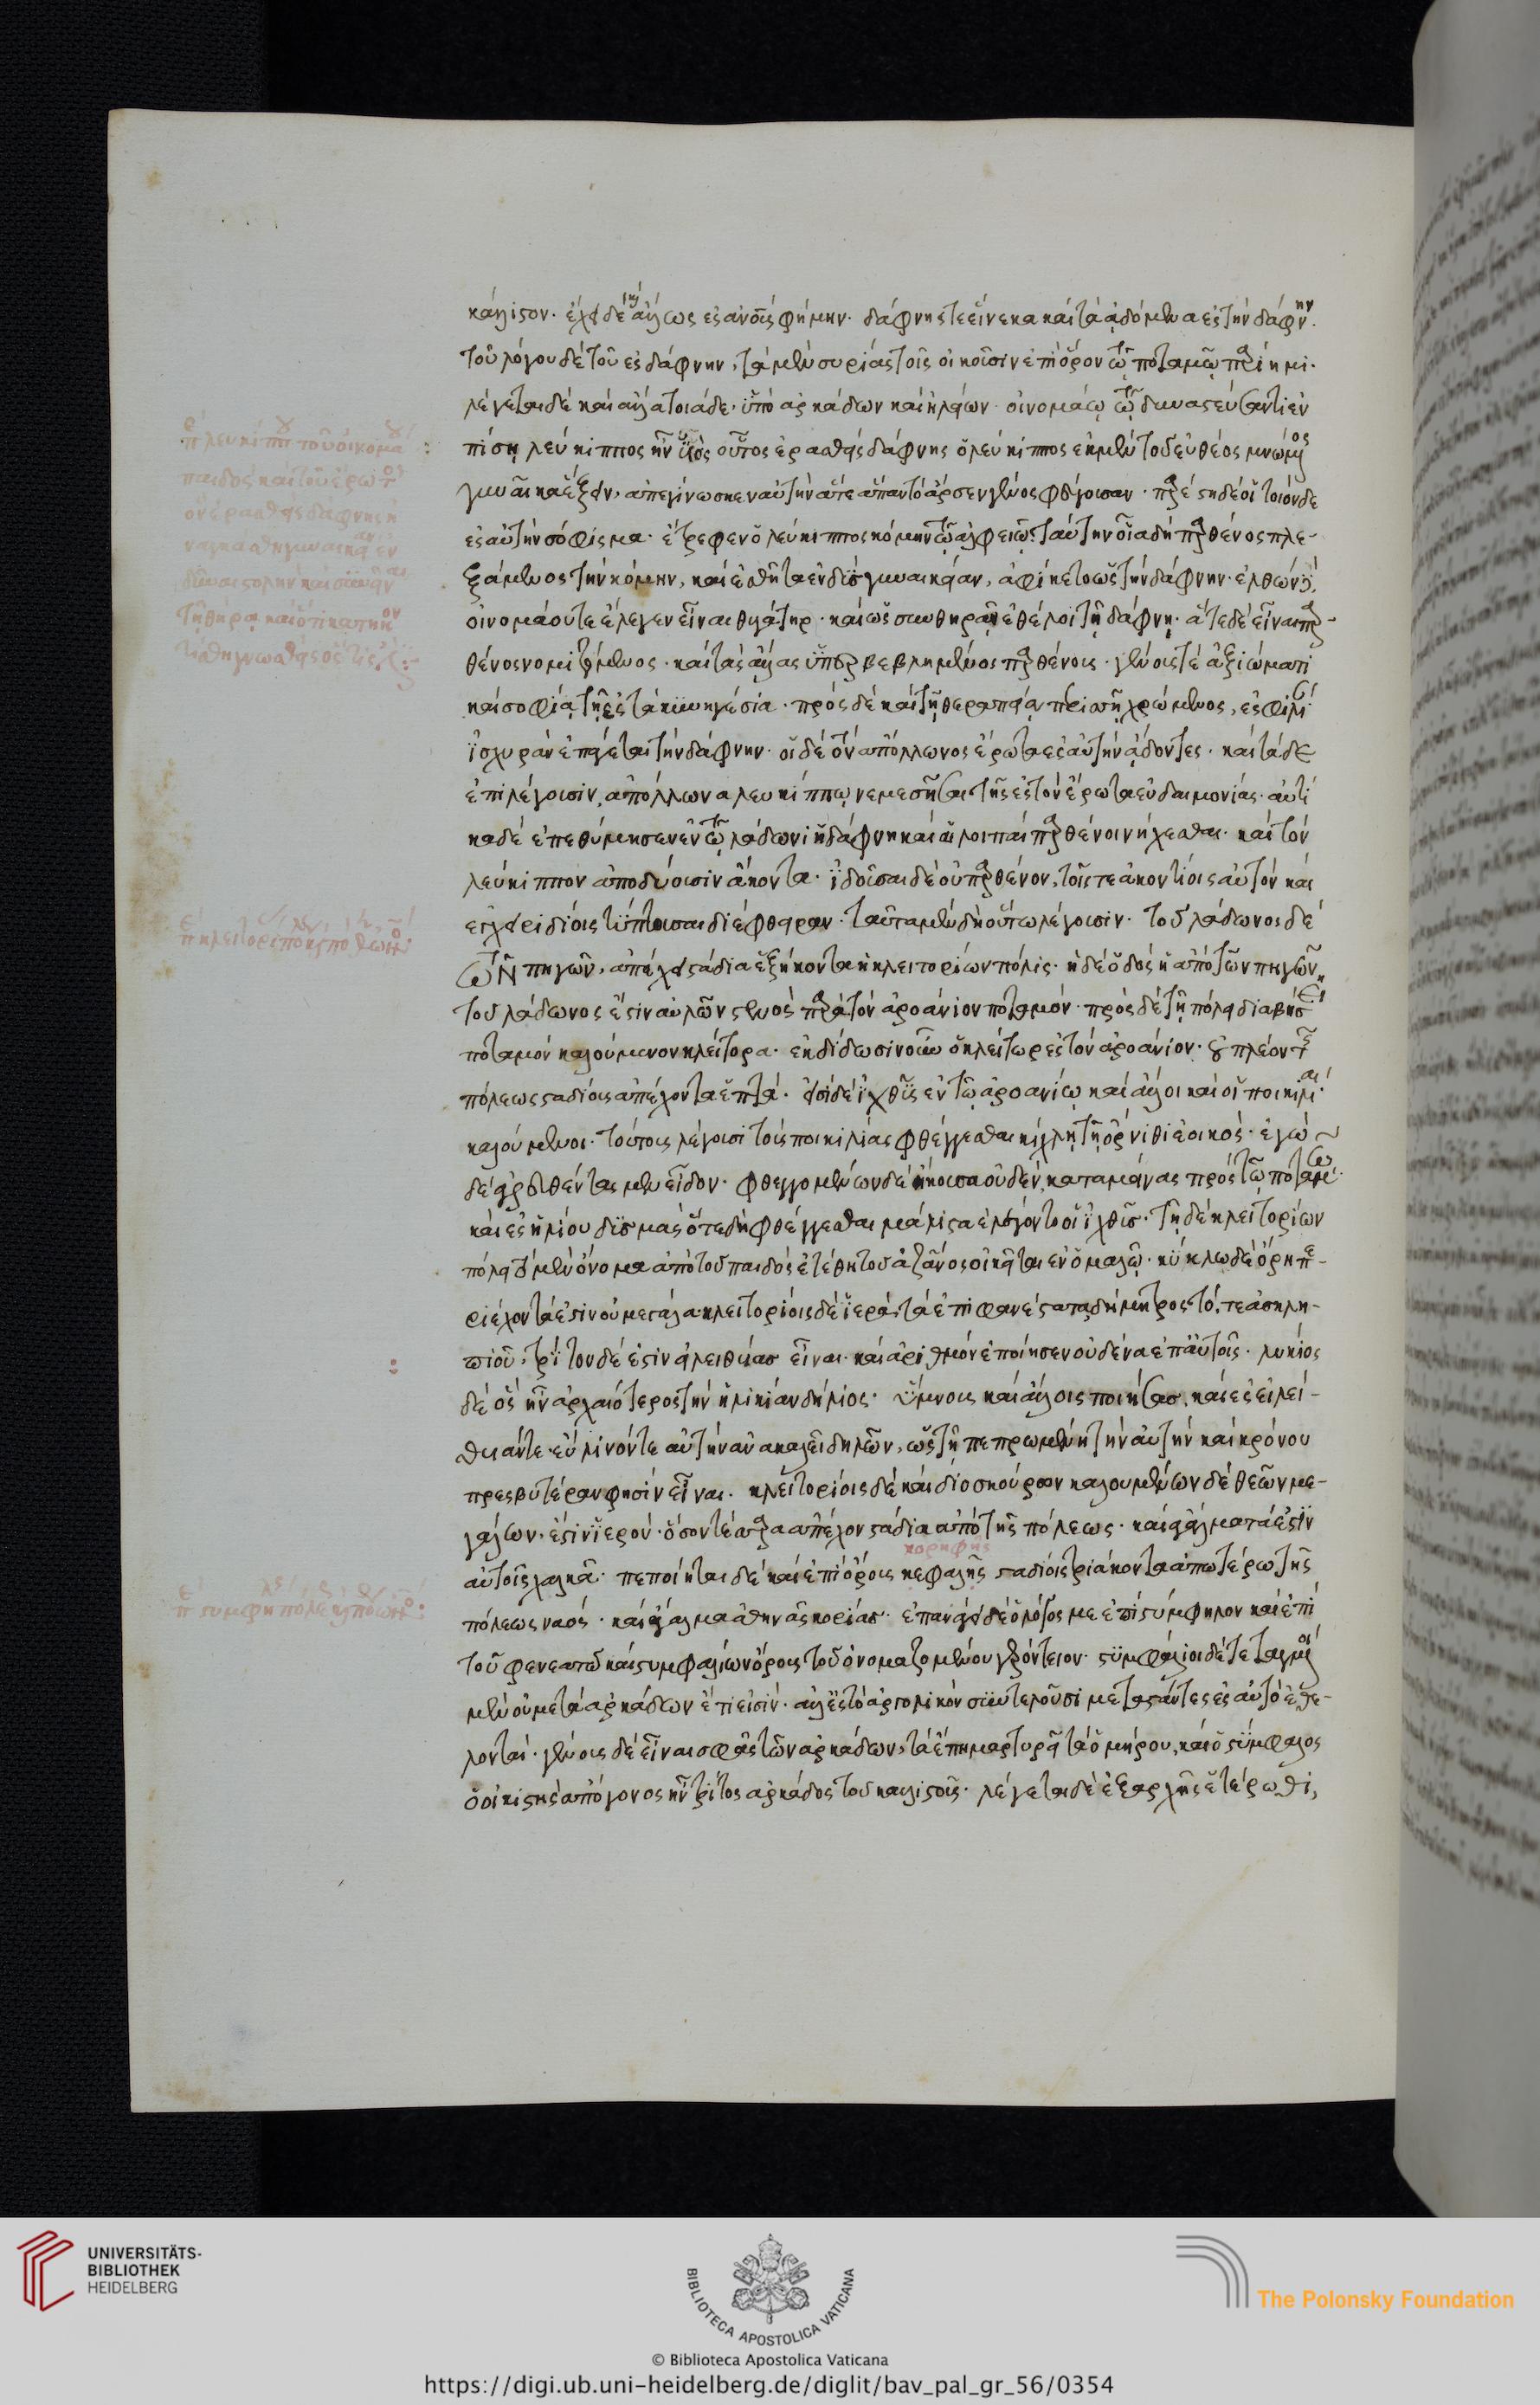 κάλλιστον. ἔχει δὲ καὶ ἄλλως ἐς ἀνθρώπους φήμην. δάφνης τε εἵνεκα καὶ τὰ ᾀδόμενα ἐς τὴν δάφνην.
τοῦ λόγου δὲ τοῦ ἐς δάφνην, τὰ μὲν σύροις τοῖς οἰκοῦσιν ἐπὶ ὀρόντῃ τῷ ποταμῷ παρίημι.
λέγεται δὲ καὶ ἄλλα τοιάδε. ὑπὸ ἀρκάδων καὶ ἠλείων. οἰνομάῳ τῷ δυναστεύσαντι ἐν
πίσῃ λεύκιππος ἦν υἱὸς οὗτος ἐρασθεὶς δάφνης ὁ λεύκιππος ἐκ μὲν τοῦ εὐθέος μνώμενος
γυναῖκα ἕξειν, ἀπεγίνωσκεν αὐτὴν ἅτε ἅπαν τὸ ἄρσεν γένος φεύγουσαν. παρέστη δέ οἱ τοιόνδε
ἐς αὐτὴν σόφισμα. ἔτρεφεν ὁ λεύκιππος κόμην τῷ ἀλφειῷ. ταύτην οἷα δὴ παρθένος πλε-
ξάμενος τὴν κόμην, καὶ ἐσθῆτα ἐνδὺς γυναικείαν, ἀφίκετο ὡς τὴν δάφνην. ἐλθὼν δὲ
οἰνομάου τε ἔλεγεν εἶναι θυγάτηρ. καὶ ὡς συνθηρᾶν ἐθέλοι τῇ δάφνῃ. ἅτε δὲ εἶναι παρ-
θένος νομιζόμενος. καὶ τὰς ἄλλας ὑπερβεβλημένος παρθένους. γένους τε ἀξιώματι
καὶ σοφίᾳ τῇ ἐς τὰ κυνηγέσια. πρὸς δὲ καὶ τῇ θεραπείᾳ περισσῇ χρώμενος, ἐς φιλίαν
ἰσχυρὰν ἐπάγεται τὴν δάφνην. οἱ δὲ τὸν ἀπόλλωνος ἔρωτα ἐς αὐτὴν ᾄδοντες. καὶ τάδε
ἐπιλέγουσιν, ἀπόλλωνα λευκίππῳ νεμεσῆσαι τῆς ἐς τὸν ἔρωτα εὐδαιμονίας. αὐτί
κα δὲ ἐπεθύμησεν ἐν τῷ λάδωνι ἡ δάφνη καὶ αἱ λοιπαὶ παρθένοι νήχεσθαι. καὶ τὸν
λεύκιππον ἀποδύουσιν ἄκοντα. ἰδοῦσαι δὲ οὐ παρθένον, τοῖς τε ἀκοντίοις αὐτὸν καὶ
ἐγχειριδίοις τύπτουσαι διέφθειραν. ταῦτα μὲν δὴ οὕτω λέγουσιν. τοῦ λάδωνος δὲ
τῶν πηγῶν, ἀπέχει στάδια ἑξήκοντα ἡ κλειτορίων πόλις. ἡ δὲ ὁδὸς ἡ ἀπὸ τῶν πηγῶν
τοῦ λάδωνος ἐστὶν αὐλὼν στενὸς παρὰ τὸν ἀροάνιον ποταμόν. πρὸς δὲ τῇ πόλει διαβήσῃ
ποταμὸν καλούμενον κλείτορα. ἐκδίδωσιν οὖν ὁ κλείτωρ ἐς τὸν ἀροάνιον. οὐ πλέον τῆς
πόλεως σταδίους ἀπέχοντα ἑπτά. εἰσὶ δὲ ἰχθῦς ἐν τῷ ἀροανίῳ καὶ ἄλλοι καὶ οἱ ποικιλίαι
καλούμενοι. τούτους λέγουσι τοὺς ποικιλίας φθέγγεσθαι κίχλῃ τῇ ὄρνιθι ἐοικός. ἐγὼ
δὲ ἀγρευθέντας μὲν εἶδον. φθεγγομένων δὲ ἤκουσα οὐδέν, καταμείνας πρὸς τῷ ποταμῷ.
καὶ ἐς ἡλίου δυσμὰς ὅτε δὴ φθέγγεσθαι μάλιστα ἐλέγοντο οἱ ἰχθῦς. τῇ δὲ κλειτορίων
πόλει τὸ μὲν ὄνομα ἀπὸ τοῦ παιδὸς ἐτέθη τοῦ ἀζᾶνος οἰκεῖται ἐν ὁμαλῷ. κύκλῳ δὲ ὄρη πε-
ριέχοντά ἐστιν οὐ μεγάλα κλειτορίοις δὲ ἱερὰ, τὰ ἐπιφανέστατα δήμητρος τό, τε ἀσκλη-
πιοῦ, τρίτον δέ ἐστιν εἰλειθυίας εἶναι. καὶ ἀριθμὸν ἐποίησεν οὐδένα ἐπ αὐτοῖς. λύκιος
δὲ ὃς ἦν ἀρχαιότερος τὴν ἡλικίαν δήλιος. ὕμνους καὶ ἄλλους ποιήσας, καὶ ἐς εἰλεί-
θυιάν τε. εὔλινόν τε αὐτὴν ἀνακαλεῖ δηλῶν, ὡς τῇ πεπρωμένῃ τὴν αὐτὴν καὶ κρόνου
πρεσβυτέραν φησὶν εἶναι. κλειτορίοις δὲ καὶ διοσκούρων καλουμένων δὲ θεῶν με-
γάλων. ἐστὶν ἱερόν. ὅσον τέσσαρα ἀπέχον στάδια ἀπὸ τῆς πόλεως. καὶ ἀγάλματά ἐστὶν
κορηφης
αὐτοῖς χαλκᾶ. πεποίηται δὲ καὶ ἐπὶ ὄρους κεφαλῆς σταδίοις τριάκοντα ἀπωτέρω τῆς
πόλεως ναός. καὶ ἄγαλμα ἀθηνᾶς κορίας. ἐπανάγει δὲ ὁ λόγος με ἐπὶ στύμφηλον καὶ ἐπὶ
τοῦ φενεατῶν καὶ στυμφαλίων ὄρους τοῦ ὀνομαζομένου γερόντειον. στυμφάλιοι δὲ τεταγμένοι
μὲν οὐ μετὰ ἀρκάδων ἔτι εἰσίν. ἀλλ ἐς τὸ ἀργολικὸν συντελοῦσι μεταστάντες ἐς αὐτὸ ἐθε-
λονταί. γένους δὲ εἶναι σφᾶς τῶν ἀρκάδων, τὰ ἔπη μαρτυρεῖ τὰ ὁμήρου, καὶ ὁ στύμφαλος
ὁ οἰκιστὴς ἀπόγονος ἦν τρίτος ἀρκάδος τοῦ καλλιστοῦς. λέγεται δὲ ἐξ ἀρχῆς ἑτέρωθι,
UNIVERSITÄTS-
BIBLIOTHEK
HEIDELBERG
BIBLIOTECA APOSTOLICA VATICANA
The Polonsky Foundation
© Biblioteca Apostolica Vaticana
https://digi.ub.uni-heidelberg.de/diglit/bav_pal_gr_56/0354